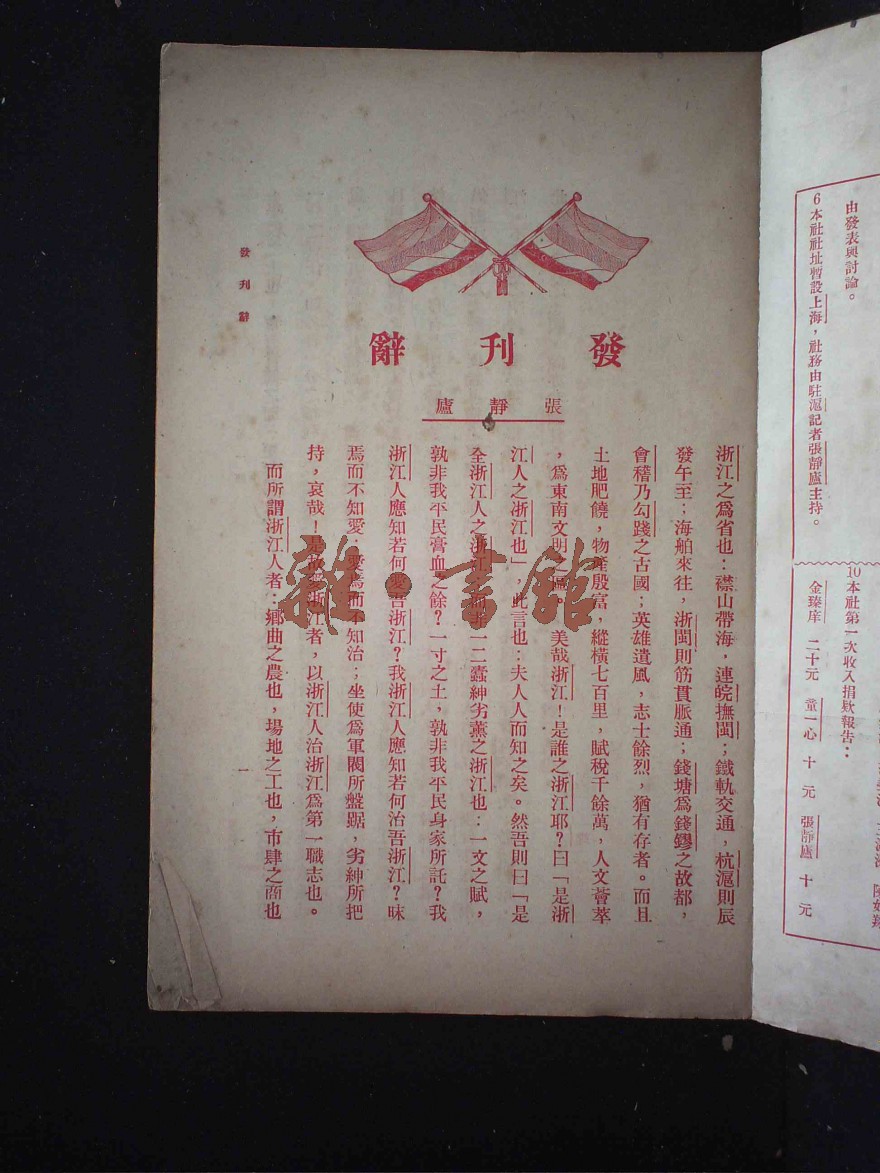 由發表與討論。
6本社社址暫設上海，社務由駐滬記者張靜廬主持。
10本社第一次收入捐欵報告：
金臻庠　二十元　董一心　十　元　張靜廬　十　元
發刊辭
張靜廬
浙江之爲省也：襟山帶海，連皖撫閩；鐵軌交通，杭滬則辰
發午至；海舶來往，浙閩則筋貫脈通；錢塘爲錢鏐之故都，
會稽乃勾踐之古國；英雄遺風，志士餘烈，猶有存者。而且
土地肥饒，物產殷富，縱橫七百里，賦稅千餘萬，人文薈萃
，爲東南文明之　美哉浙江！是誰之浙江耶？曰「是浙
江人之浙江也」，此言也：夫人人而知之矣。然吾則曰「是
全浙江人之浙江　一二蠹紳劣黨之浙江也：一文之賦，
孰非我平民膏血之餘？一寸之土，孰非我平民身家所託？我
浙江人應知若何愛吾浙江？我浙江人應知若何治吾浙江？昧
焉而不知愛；愛焉而不知治；坐使爲軍閥所盤踞，劣紳所把
持，哀哉！是故愛浙江者，以浙江人治浙江爲第一職志也。
而所謂浙江人者：鄉曲之農也，場地之工也，市肆之商也
發刊辭
一
雜·書館